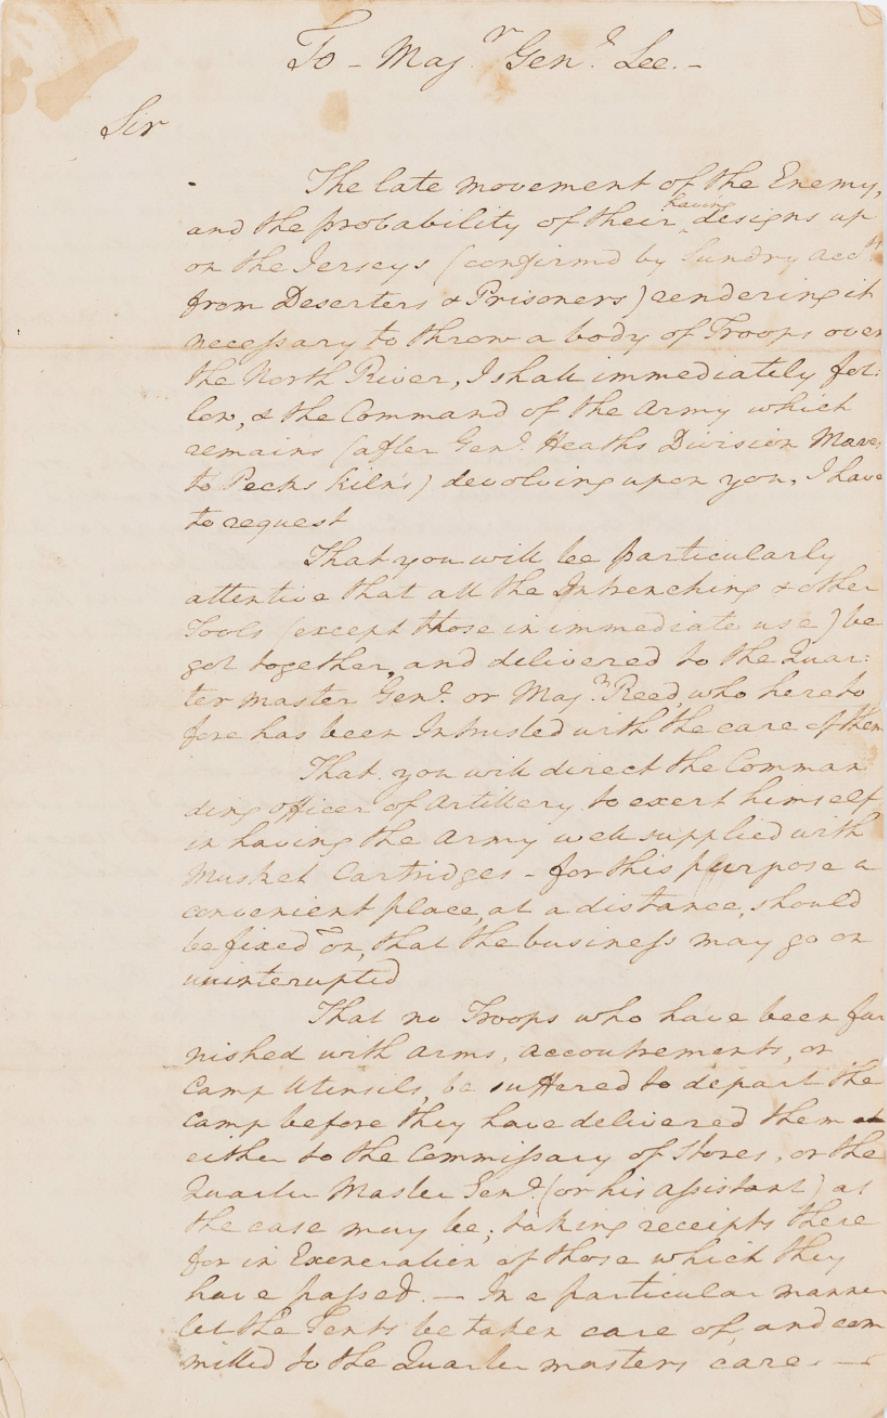 To - Maj.r Gen.l Lee. -
Sir
The late movement of the Enemy,
and the probability of their having designs up
on the Jerseys (confirmd by Sundry acc.ts
from Deserters & Prisoners) rendering it
necessary to throw a body of Troops over
the North River, I shall immediately fol:
low, & the Command of the Army which
remains (after Gen.l Heaths Division Moves
to Pecks Kiln's) devolving upon you, I have
to request
That you will be particularly
attentive that all the Intrenching & other
Tools (except those in immediate use) be
got together, and delivered to the Quar:
ter master Gen.l or Maj.r Reed, who hereto
fore has been Intrusted with the care of them
That you will direct the Comman
ding officer of Artillery to exert himself
in having the Army well supplied with
Musket Cartridges - for this purpose a
convenient place, at a distance, should
be fixed on, that the business may go on
uninterupted
That no Troops who have been fur
nished with arms, accoutrements, or
Camp Utensils, be suffered to depart the
camp before they have delivered them
either to the Commissary of Stores, or the
Quarter Master Gen.l (or his assistant) as
the case may be; taking receipts there
for in Exoneration of those which they
have passed. — In a particular manner
let the Tents be taken care of, and com
mitted to the Quarter masters care. —